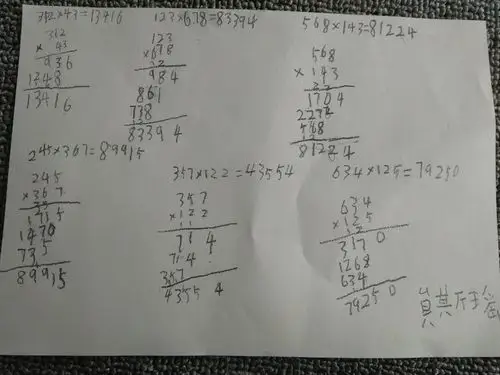 312×43=13416
312
× 43
936
1248
13416
123×678=83394
123
×678
984
861
738
83394
568×143=81224
568
×143
1704
2272
568
81224
245×367=89915
245
×367
1715
1470
735
89915
357×122=43554
357
×122
714
714
357
43554
634×125=79250
634
×125
3170
1268
634
79250